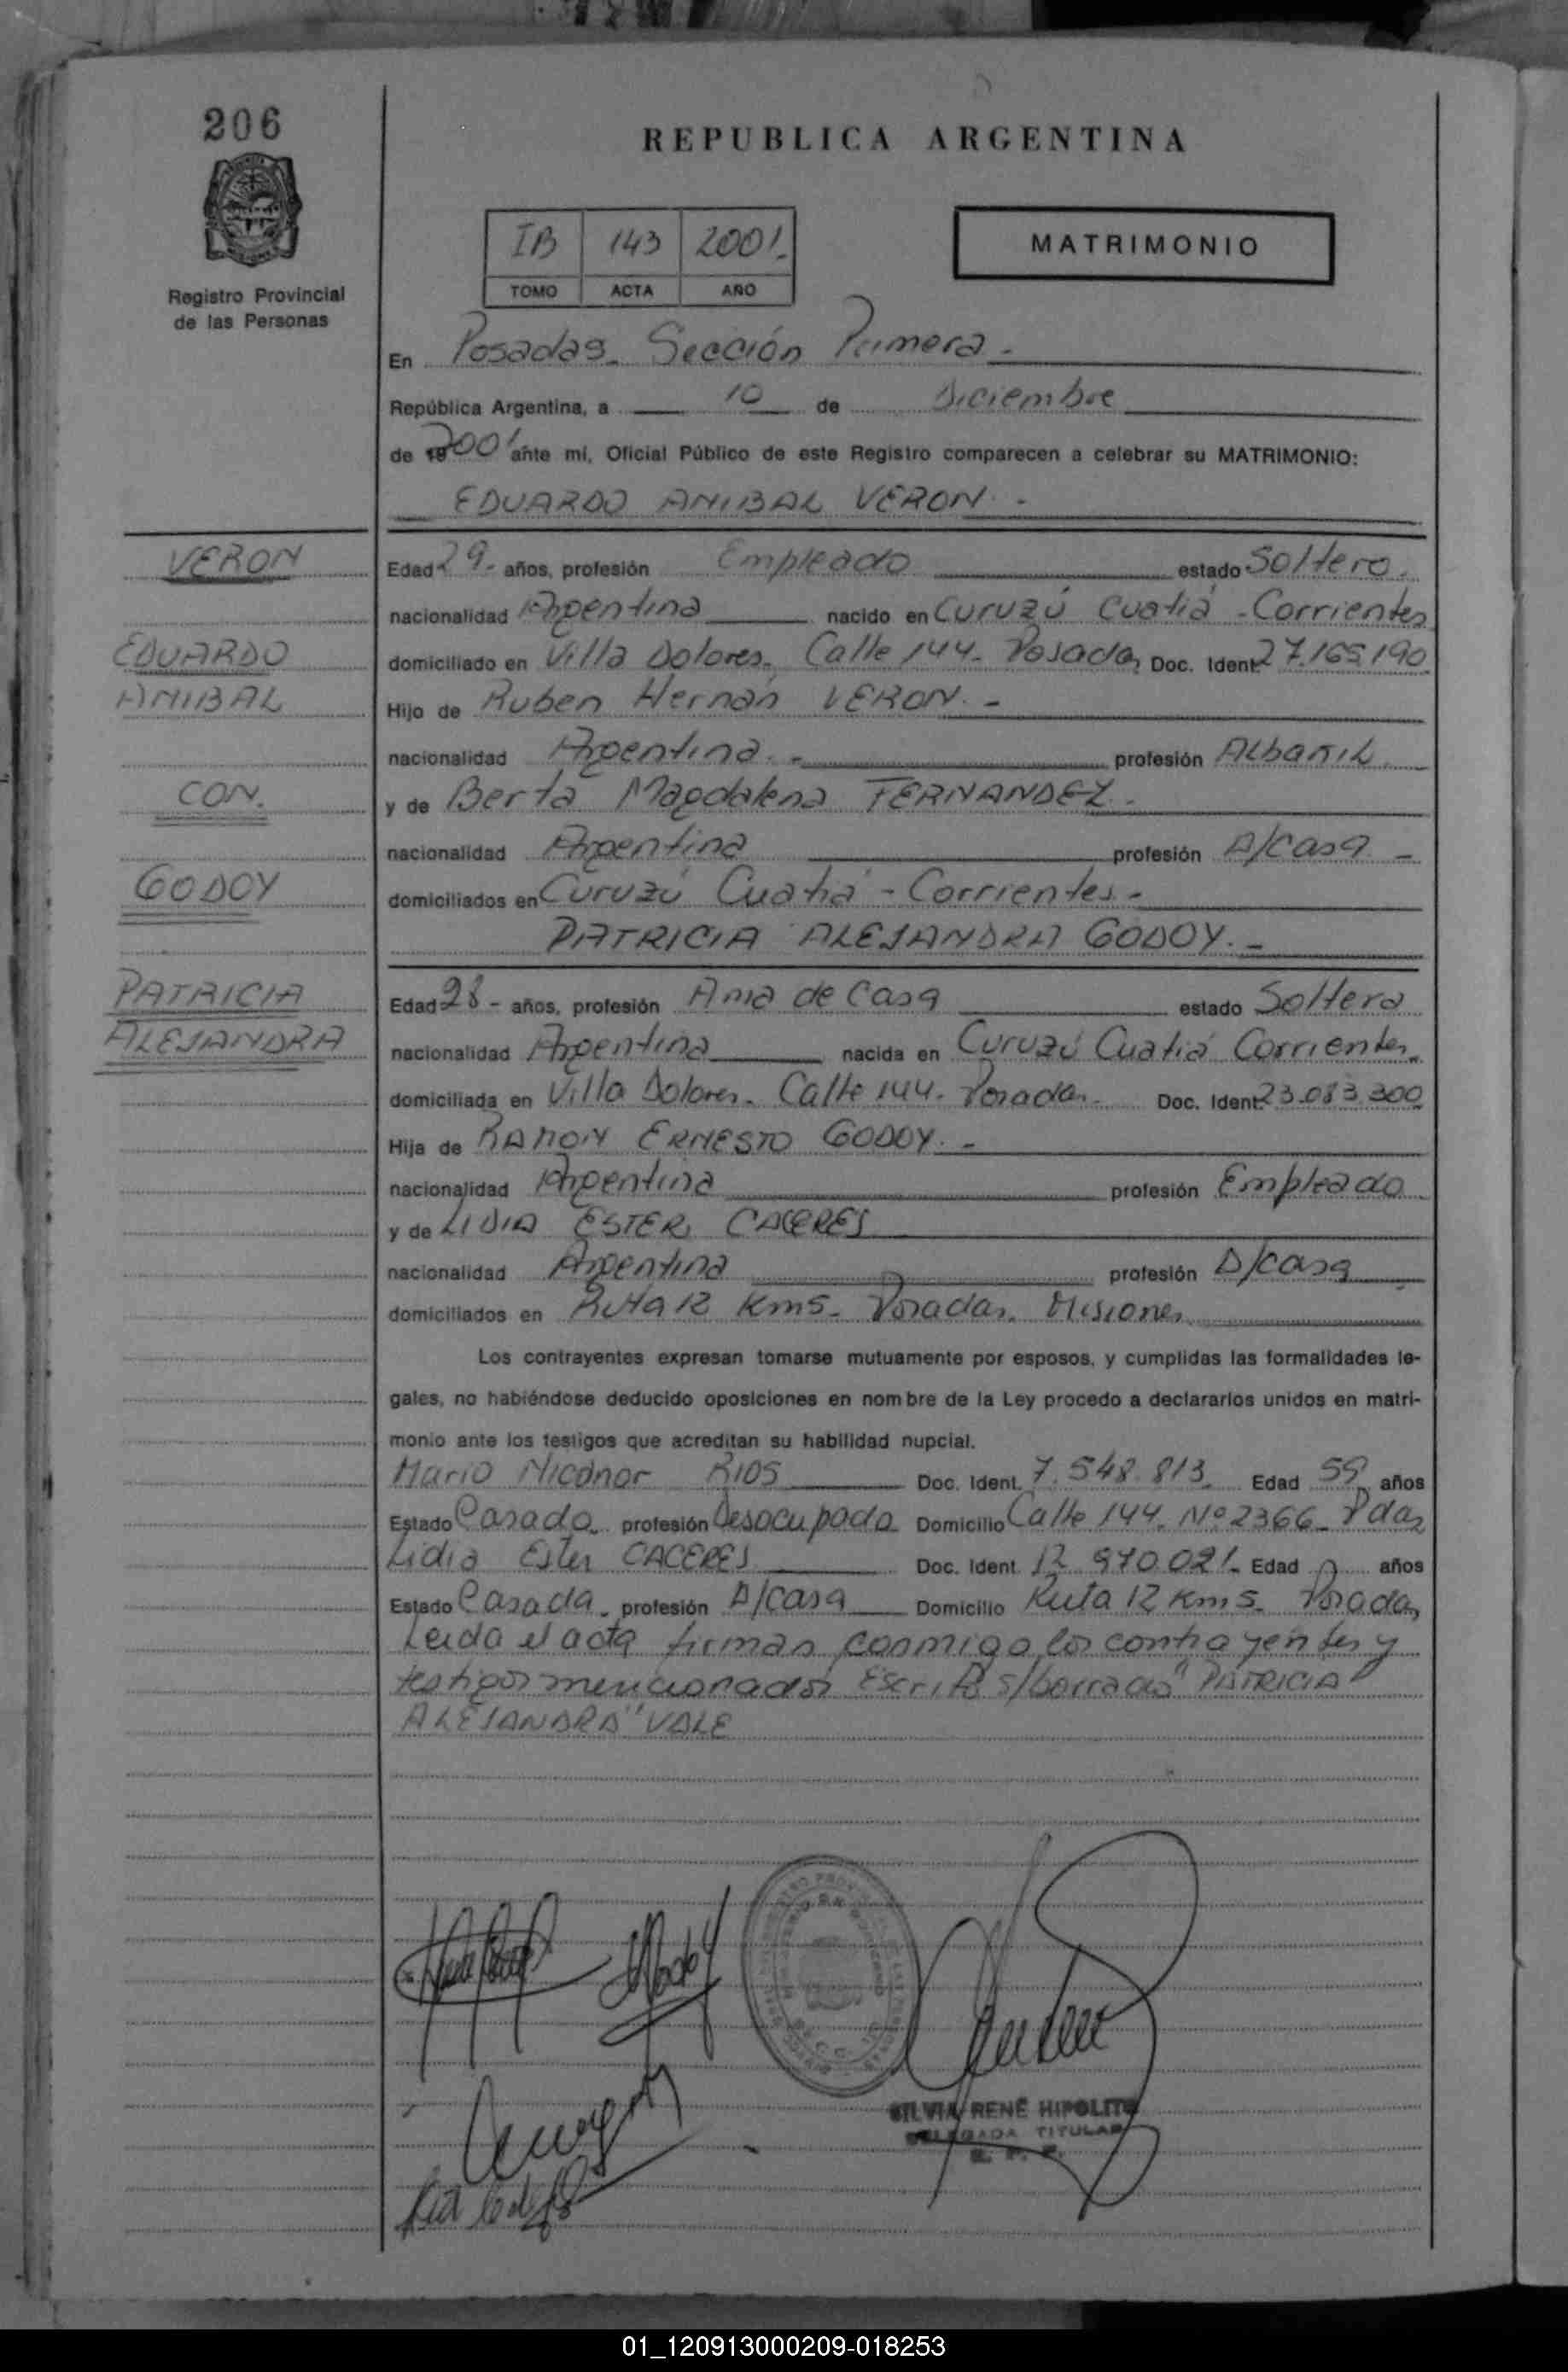 206
REPUBLICA ARGENTINA
Registro Provincial
de las Personas
IB 143 2001.-
TOMO ACTA AÑO
MATRIMONIO
En Posadas. Sección Primera -
República Argentina, a 10 de Diciembre
de 2001 ante mí, Oficial Público de este Registro comparecen a celebrar su MATRIMONIO:
EDUARDO ANIBAL VERON. -
VERON
EDUARDO
ANIBAL
CON.
GODOY
PATRICIA
ALEJANDRA
Edad 29.- años, profesión Empleado estado Soltero.
nacionalidad Argentina nacido en Curuzú Cuatiá - Corrientes
domiciliado en Villa Dolores. Calle 144. Posadas Doc. Ident. 27.165.190
Hijo de Ruben Hernán VERON. -
nacionalidad Argentina. - profesión Albañil
y de Berta Magdalena FERNANDEZ.
nacionalidad Argentina profesión A/Casa. -
domiciliados en Curuzú Cuatiá - Corrientes. -
PATRICIA ALEJANDRA GODOY. -
Edad 28 - años, profesión Ama de Casa estado Soltera
nacionalidad Argentina nacida en Curuzú Cuatiá Corrientes.
domiciliada en Villa Dolores. Calle 144. Posadas. Doc. Ident. 23.083.300
Hija de RAMON ERNESTO GODOY. -
nacionalidad Argentina profesión Empleado
y de LIDIA ESTER CACERES
nacionalidad Argentina profesión A/casa
domiciliados en Ruta 12 Km 5. Posadas. Misiones
Los contrayentes expresan tomarse mutuamente por esposos, y cumplidas las formalidades le-
gales, no habiéndose deducido oposiciones en nombre de la Ley procedo a declararlos unidos en matri-
monio ante los testigos que acreditan su habilidad nupcial.
Mario Nicanor RIOS Doc. Ident. 7.548.813 Edad 59 años
Estado Casado. profesión Desocupado Domicilio Calle 144. Nº 2366. Pdas
Lidia Ester CACERES Doc. Ident. 12.970.021. Edad años
Estado Casada. profesión A/casa Domicilio Ruta 12 Km 5. Posadas
Leida el acta firman conmigo los contrayentes y
testigos mencionados Escrito s/borrado "PATRICIA
ALEJANDRA" VALE
SILVIA RENÉ HIPOLITO
DELEGADA TITULAR
R. P. P.
01_120913000209-018253